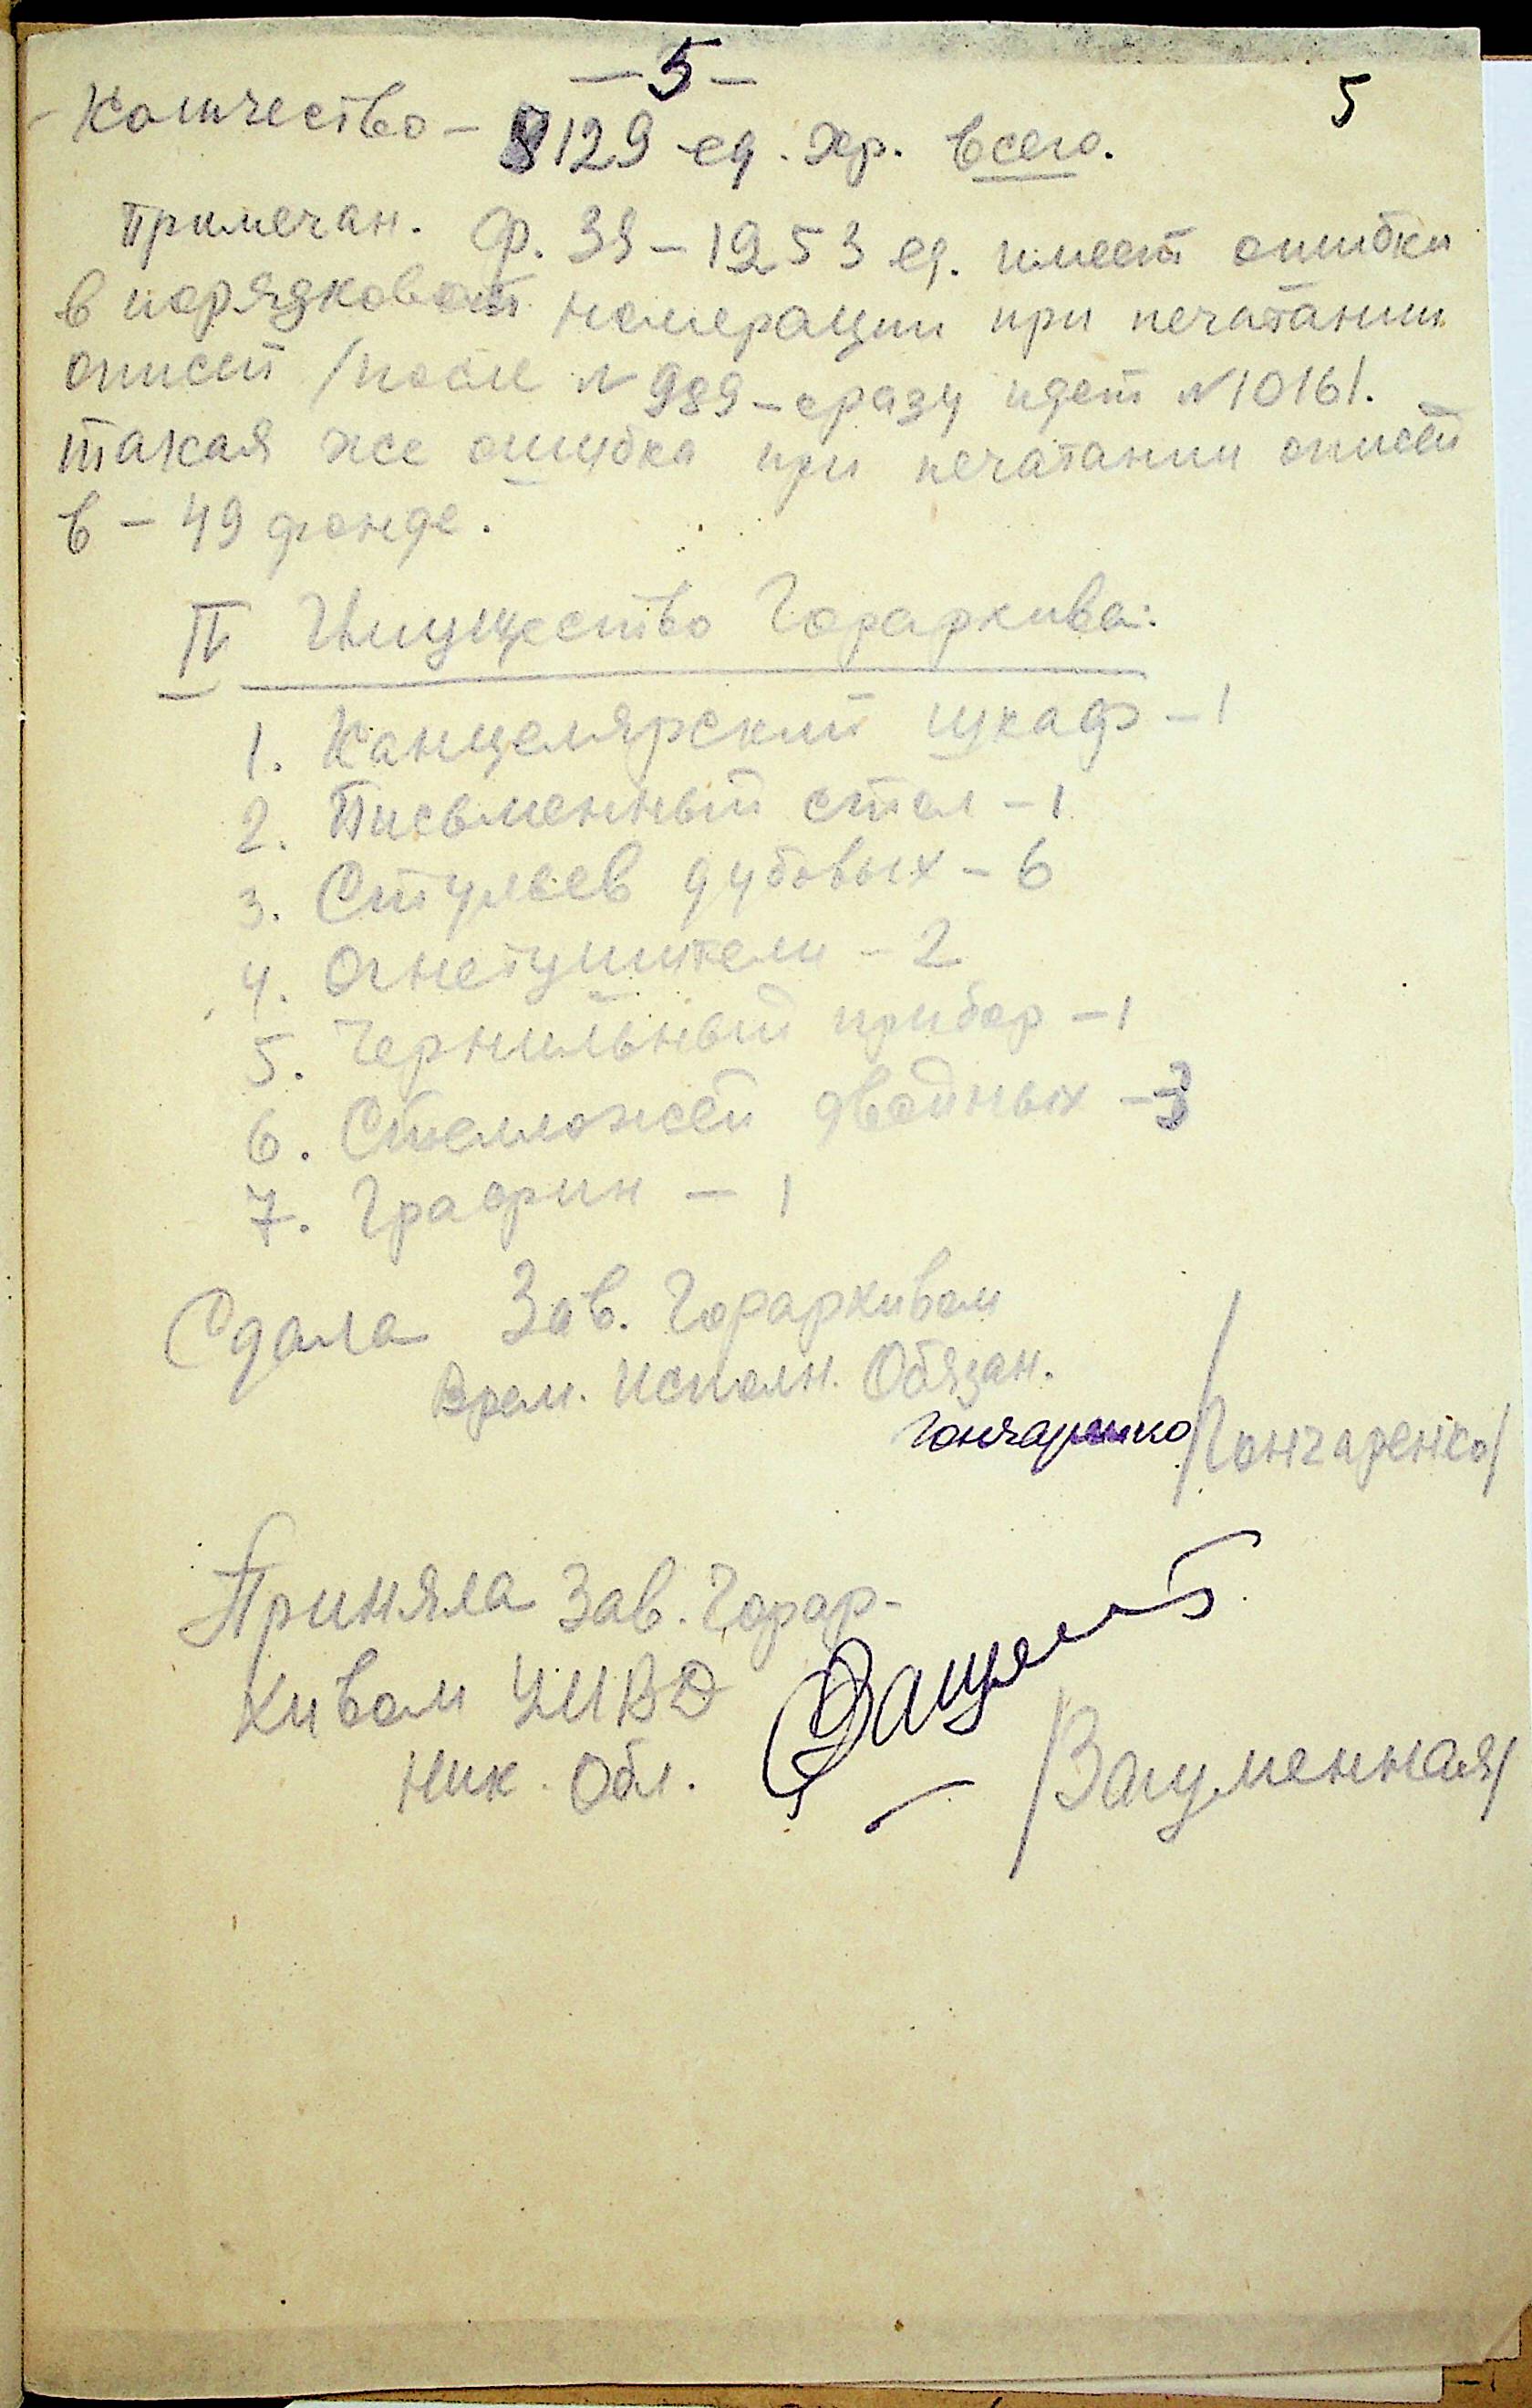 — 5 —
5
Количество — 8129 ед. хр. всего.
Примечан. Ф. 39 — 1253 ед. имеет ошибки
в порядковой номерации при печатании
описей /после № 989 — сразу идет № 1016/.
такая же ошибка при печатании описей
в — 49 фонде.
II Имущество Горархива:
1. Канцелярский шкаф — 1
2. Письменный стол — 1
3. Стульев дубовых — 6
4. Огнетушители — 2
5. Чернильный прибор — 1
6. Стеллажей двойных — 3
7. Графин — 1
Сдала Зав. Горархивом
Врем. Исполн. Обязан.
Гончаренко /Гончаренко/
Приняла Зав. Горар-
хивом УМВД
Ник. Обл.
/Загуменная/